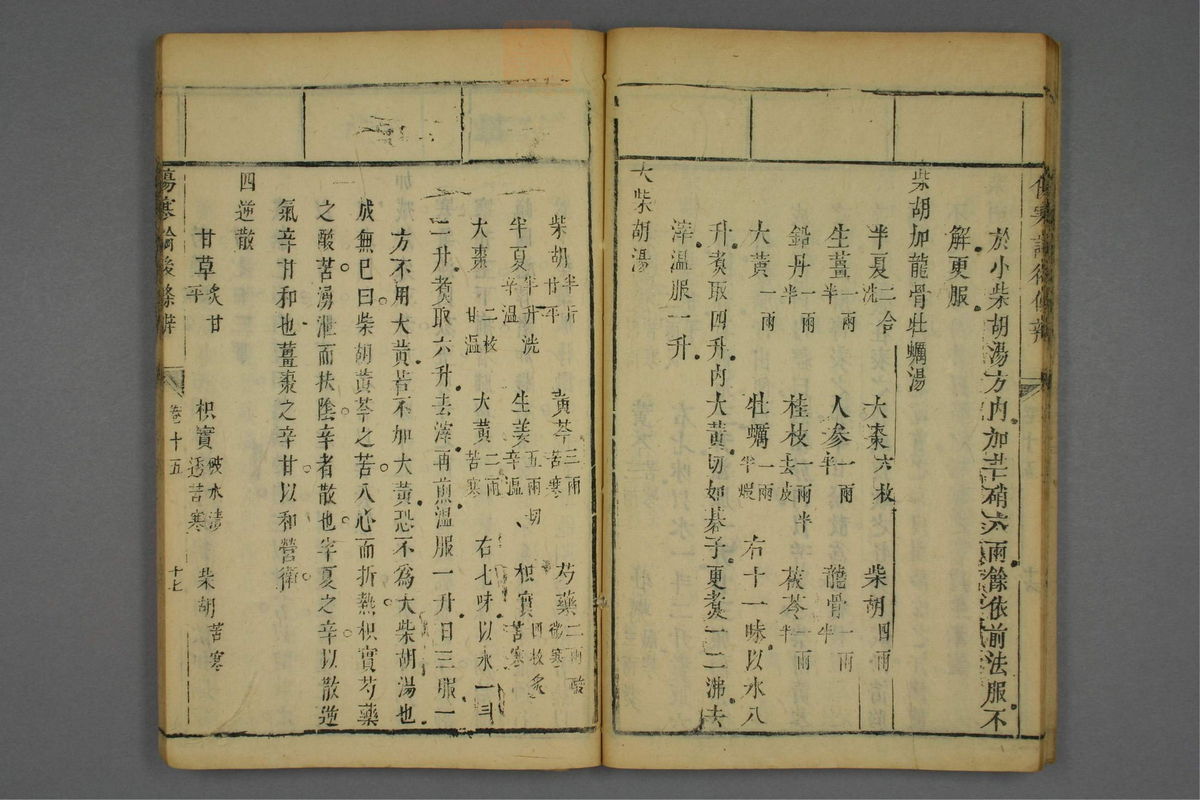 於小柴胡湯方內加芒硝六兩餘依前法服不
解更服
柴胡加龍骨牡蠣湯
半夏二合洗 大棗六枚 柴胡四兩
生薑一兩半 人參一兩半 龍骨一兩半
鉛丹一兩半 桂枝一兩半去皮 茯苓一兩半
大黃一兩 牡蠣一兩半煆 右十一味以水八
升煮取四升內大黃切如碁子更煮一二沸去
滓溫服一升
大柴胡湯
柴胡半斤甘平 黃芩三兩苦寒 芍藥二兩酸微寒
半夏半升洗辛溫 生姜五兩切辛溫 枳實四枚炙苦寒
大棗十二枚甘溫 大黃二兩苦寒 右七味以水一斗
二升煮取六升去滓再煎溫服一升日三服一
方不用大黃若不加大黃恐不為大柴胡湯也
成無已曰柴胡黃芩之苦入心而折熱枳實芍藥
之酸苦湧泄而扶陰辛者散也半夏之辛以散逆
氣辛甘和也薑棗之辛甘以和營衛
四逆散
甘草炙甘平 枳實破水漬透苦寒 柴胡苦寒
傷寒論後條辨 卷十五 十七